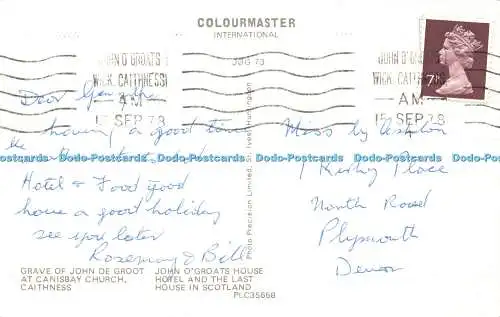 COLOURMASTER
INTERNATIONAL
JOHN O'GROATS
WICK, CAITHNESS
AM
15 SEP 78
JOHN O'GROATS
WICK, CAITHNESS
AM
15 SEP 78
7P
Dear
having a good time
Hotel & Food good
have a good holiday
see you later
Rosemary & Bill
Miss
Place
North Road
Plymouth
Devon
Photo Precision Limited, St. Ives, Huntingdon
Dodo-Postcards Dodo-Postcards Dodo-Postcards Dodo-Postcards Dodo-Postcards
GRAVE OF JOHN DE GROOT
AT CANISBAY CHURCH,
CAITHNESS
JOHN O'GROATS HOUSE
HOTEL AND THE LAST
HOUSE IN SCOTLAND
PLC35668